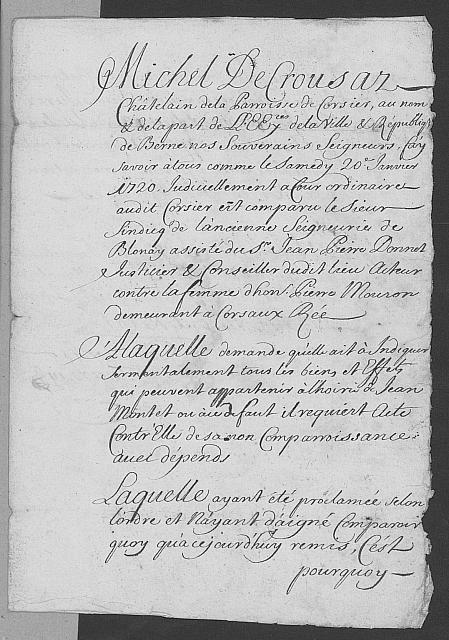 Michel DeCrousaz
Châtelain dela Parroisse de Corsier, au nom
& delapart de LLEEces dela Ville & Républiq
de Berne nos Souverains Seigneurs, fay
savoir àtous comme le Samedy 20e Janvier
1720. Judiciellement a Cour ordinaire
audit Corsier est comparu le Sieur
Sindiq de l'ancienne Seigneurie de
Blonay assisté du Sr. Jean Pierre Donnet
Justicier & Conseiller dudit lieu Acteur
contre la femme d'hon. Pierre Mouron
demeurant à Corsaux Rée
Alaquelle demande qu'elle ait à Indiquer
Sermentalement tous les biens et Effets
qui peuvent appartenir à l'hoirie de Jean
Montet ou àu defaut il requiert Acte
Contr'Elle de sa non Comparroissance
avec dépends
Laquelle ayant été proclamée selon
l'ordre et N'ayant daigné Comparoir
quoy qu'à cejourd'huy remis, C'est
pourquoy